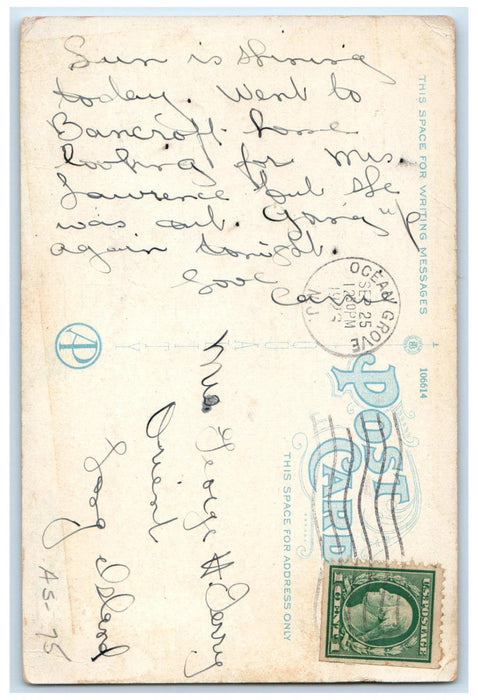 Sun is shining
today. Went to
Bancroft home
looking for Mrs.
Lawrence but she
was out. Going up
again tonight.
Love
Carol
THIS SPACE FOR WRITING MESSAGES
OCEAN GROVE
SEP 25
12 30PM
N.J.
QUALITY
106614
POST
CARD
THIS SPACE FOR ADDRESS ONLY
Mrs George H Terry
Orient
Long Island
U.S. POSTAGE
1 CENT 1
AS-75